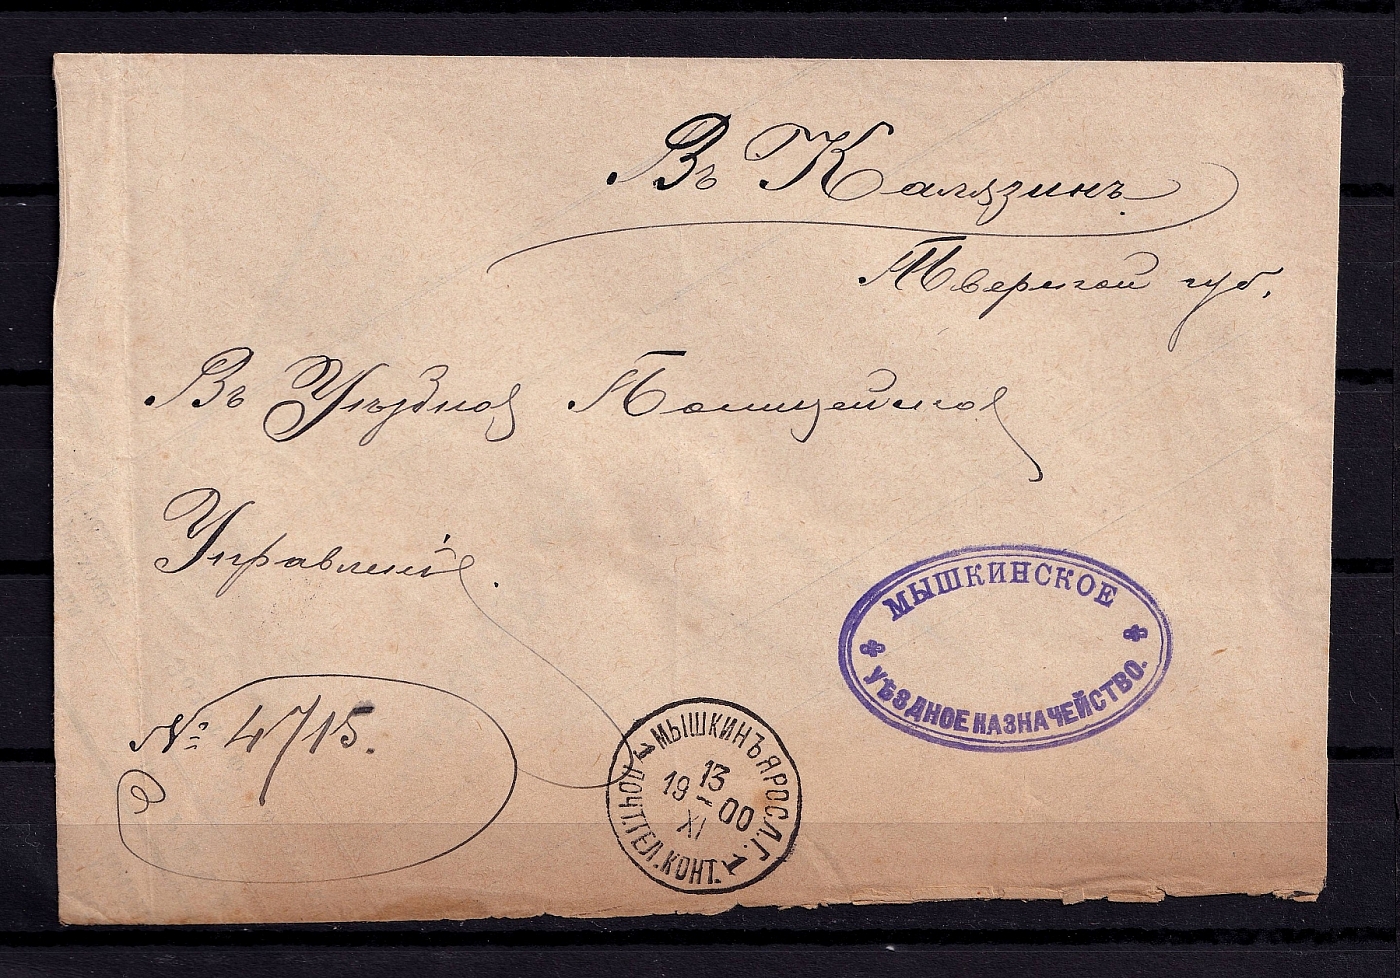 Въ Калязинъ
Тверской губ.
Въ Уѣздное Полицейское
Управленіе.
№ 4715.
МЫШКИНСКОЕ
УѢЗДНОЕ КАЗНАЧЕЙСТВО.
МЫШКИНЪ ЯРОСЛ. Г.
13
19 – 00
XI
1 ПОЧТ. ТЕЛ. КОНТ. 1